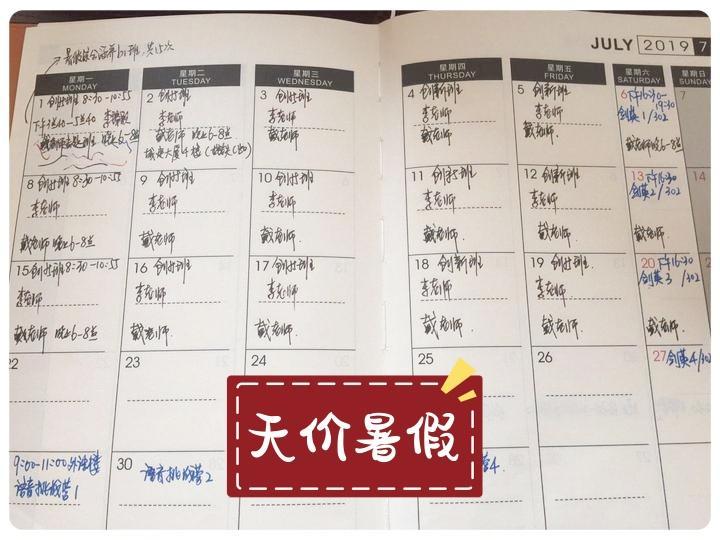 JULY 2019 7
星期一 MONDAY
星期二 TUESDAY
星期三 WEDNESDAY
星期四 THURSDAY
星期五 FRIDAY
星期六 SATURDAY
星期日 SUNDAY
1 创新班 8:30-10:55
李老师
戴老师 晚上6-8点
2 创新班
李老师
戴老师 晚上6-8点
3 创新班
李老师
戴老师
4 创新班
李老师
戴老师
5 创新班
李老师
戴老师
6 下午16:30-
19:30
剑英1/302
戴老师晚6-8点
7
8 创新班 8:30-10:55
李老师
戴老师 晚上6-8点
9 创新班
李老师
戴老师
10 创新班
李老师
戴老师
11 创新班
李老师
戴老师
12 创新班
李老师
戴老师
13 下午16:30
剑英2/302
戴老师
14
15 创新班 8:30-10:55
李老师
戴老师 晚上6-8点
16 创新班
李老师
戴老师
17 创新班
李老师
戴老师
18 创新班
李老师
戴老师
19 创新班
李老师
戴老师
20 下午16:30
剑英3/302
戴老师
22
23
24
25
26
27 剑英4/302
天价暑假
9:00-11:00
语音挑战营1
30 语音挑战营2
营4